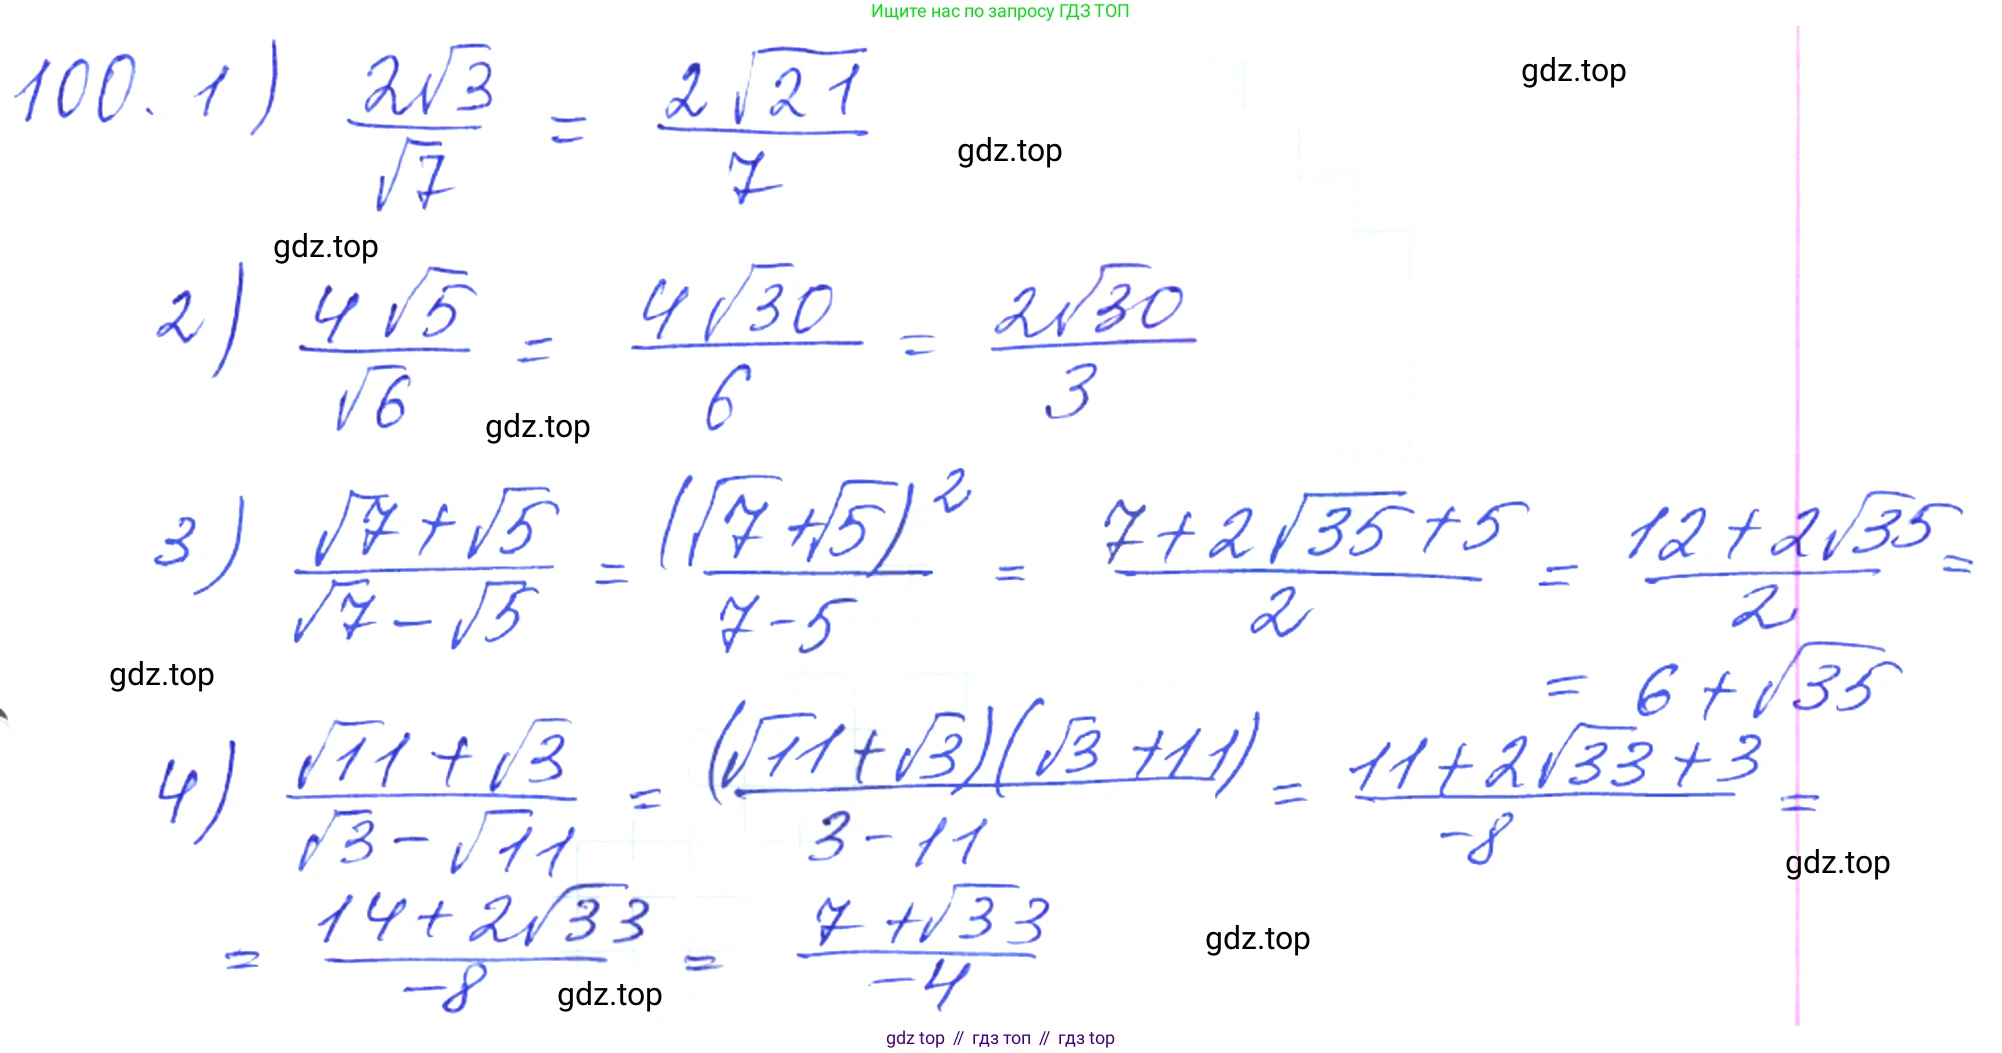 Ищите нас по запросу ГДЗ ТОП
100. 1) 2√3/√7 = 2√21/7
gdz.top
gdz.top
gdz.top
2) 4√5/√6 = 4√30/6 = 2√30/3
gdz.top
3) (√7+√5)/(√7-√5) = (√7+√5)²/(7-5) = (7+2√35+5)/2 = (12+2√35)/2 =
= 6+√35
gdz.top
4) (√11+√3)/(√3-√11) = (√11+√3)(√3+11)/(3-11) = (11+2√33+3)/-8 =
gdz.top
= (14+2√33)/-8 = (7+√33)/-4
gdz.top
gdz.top
gdz top // гдз топ // gdz top